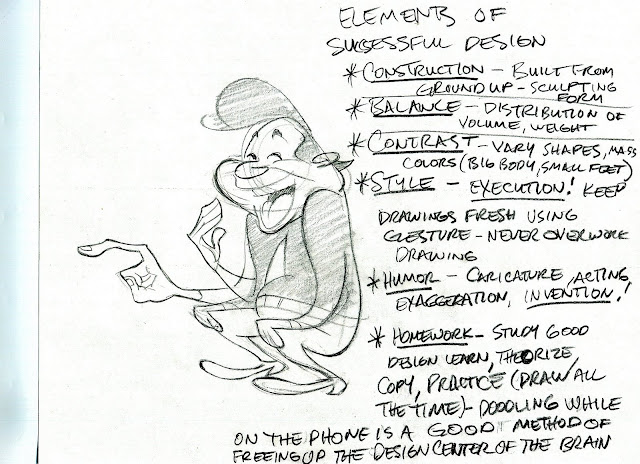 ELEMENTS OF
SUCSESSFUL DESIGN
* CONSTRUCTION - BUILT FROM
GROUND UP - SCULPTING
FORM
* BALANCE - DISTRIBUTION OF
VOLUME, WEIGHT
* CONTRAST - VARY SHAPES, MASS
COLORS (BIG BODY, SMALL FEET)
* STYLE - EXECUTION! KEEP
DRAWINGS FRESH USING
GESTURE - NEVER OVERWORK
DRAWING
* HUMOR - CARICATURE, ACTING
EXAGGERATION, INVENTION!
* HOMEWORK - STUDY GOOD
DESIGN LEARN, THEORIZE,
COPY, PRACTICE (DRAW ALL
THE TIME) - DOODLING WHILE
ON THE PHONE IS A GOOD METHOD OF
FREEING UP THE DESIGN CENTER OF THE BRAIN